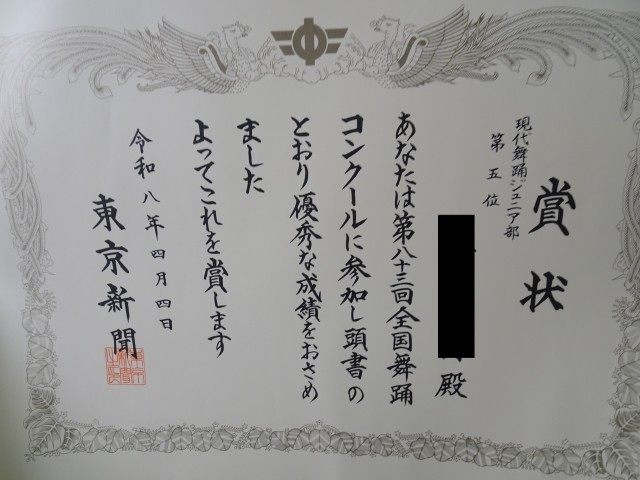 賞状
現代舞踊ジュニア部
第五位
殿
あなたは第八十三回全国舞踊
コンクールに参加し頭書の
とおり優秀な成績をおさめ
ました
よってこれを賞します
令和八年四月四日
東京新聞